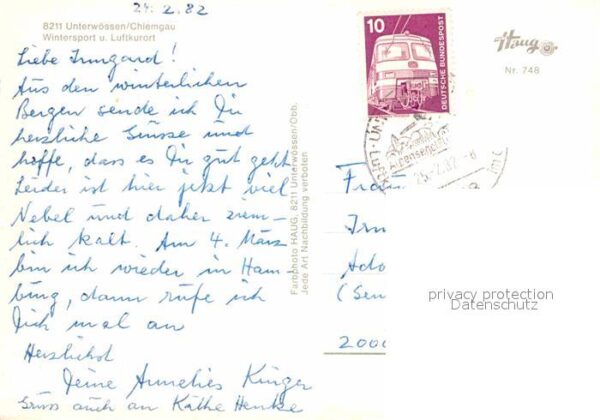 24.2.82
8211 Unterwössen/Chiemgau
Wintersport u. Luftkurort
Liebe Irmgard!
Aus den winterlichen
Bergen sende ich Dir
herzliche Grüsse und
hoffe, dass es Dir gut geht
Leider ist hier jetzt viel
Nebel und daher ziem-
lich kalt. Am 4. März
bin ich wieder in Ham
burg, dann rufe ich
Dich mal an
Herzlichst
Deine Annelies
Gruss auch an Käthe Henke
Farbphoto HAUG, 8211 Unterwössen/Obb.
Jede Art Nachbildung verboten
10
DEUTSCHE BUNDESPOST
Haug
Nr. 748
25.-2.82-8
Frau
Irm
Ado
(Sen
2000
privacy protection
Datenschutz